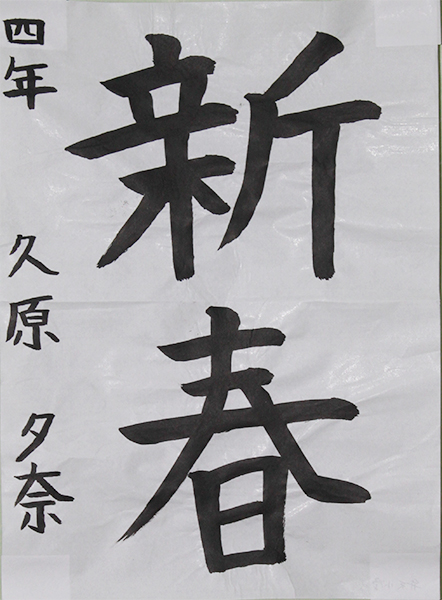 新春
四年 久原 夕奈